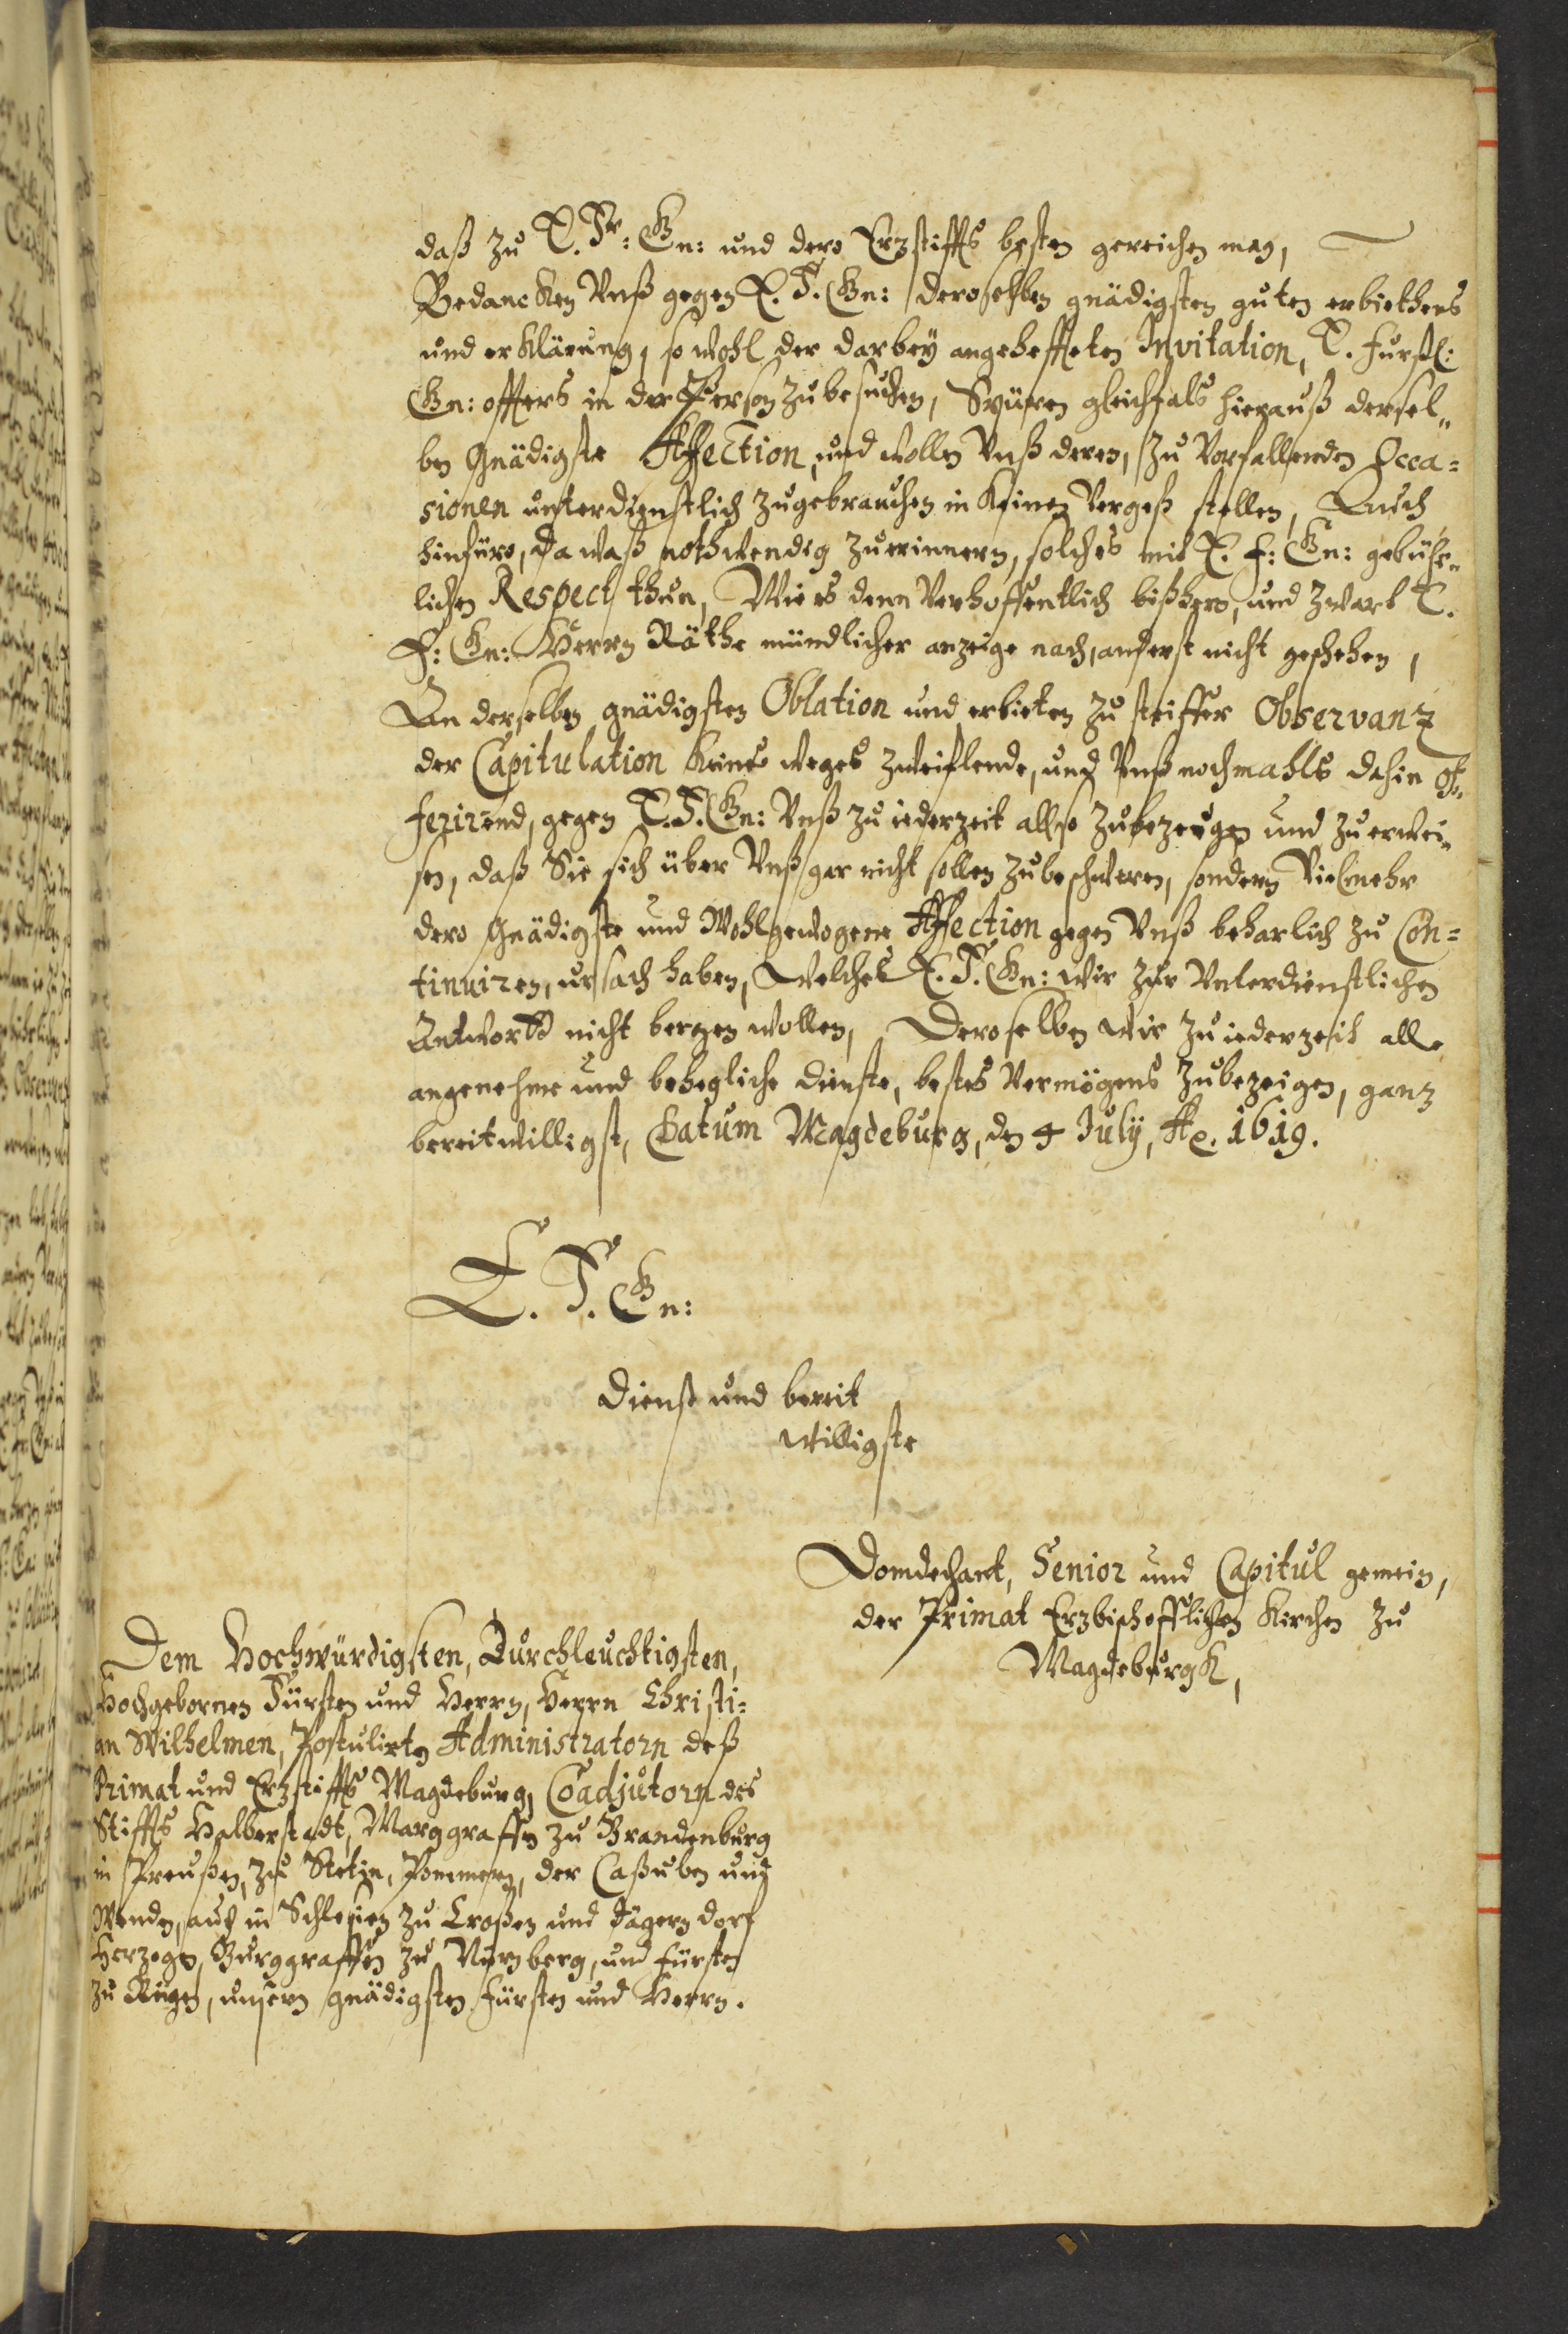 daß zu E. Fr: Gn: und dero Erzstiffts besten gereichen mag,
Bedancken Vnß gegen E. F. Gn: deroselben gnädigsten guten erbiethens
und erklärung, so wohl der darbey angehefften Invitation, E. Furstl:
Gn: offters in der Person zu besuchen, Spüren gleichfals hierauß dersel„
ben gnädigste Affection, und wollen Vnß deren, zu Vorfallenden Occa=
sionen unterdienstlich zugebrauchen in keinen Vergeß stellen, Auch
hinfüro, da waß nothwendig zuerinnern, solches mit E. F: Gn: gebühr„
lichen Respect thun, Wie es denn Verhoffentlich bißhero, und zwart E.
F: Gn: Herrn Räthe mündlicher anzeige nach, anderst nicht geschehen,
An derselben gnädigsten Oblation und erbieten zu steiffer Observanz
der Capitulation keines weges zweiflende, und Vnß nochmahls dahin of„
ferirend, gegen E. F. Gn: Vnß zu iederzeit allso zubezeugen und zu erwei„
sen, daß Sie sich über Vnß gar nicht sollen zubeschweren, sondern Vielmehr
dero gnädigste und Wohlgewogene Affection gegen Vnß beharlich zu Con=
tinuiren, ursach haben, Welches E. F. Gn: wir zur Vnterdienstlichen
Antwortt nicht bergen wollen, Deroselben wir zu iederzeit alle
angenehme und behegliche dienste, bestes Vermögens zubezeigen, ganz
bereitwilligst, Datum Magdeburg, den 4 July, Ao. 1619.
E. F. Gn:
Dienst und bereit
willigste
Domdechant, Senior und Capitul gemein,
der Primat Erzbischofflichen Kirchen zu
Magdeburgk,
Dem Hochwürdigsten, Durchleuchtigsten,
Hochgebornen Fürsten und Herrn, Herrn Christi=
an Wilhelmen, Postulirten Administratorn deß
Primat und Erzstiffts Magdeburg, Coadjutorn des
Stiffts Halberstadt, Marggraffen zu Brandenburg
in Preußen, zu Stetin, Pommern, der Caßuben und
Wenden, auch in Schlesien zu Croßen und Jägerndorf
Herzogen, Burggraffen zu Nürnberg, und Fürsten
zu Rügen, unsern gnädigsten Fürsten und Herrn.